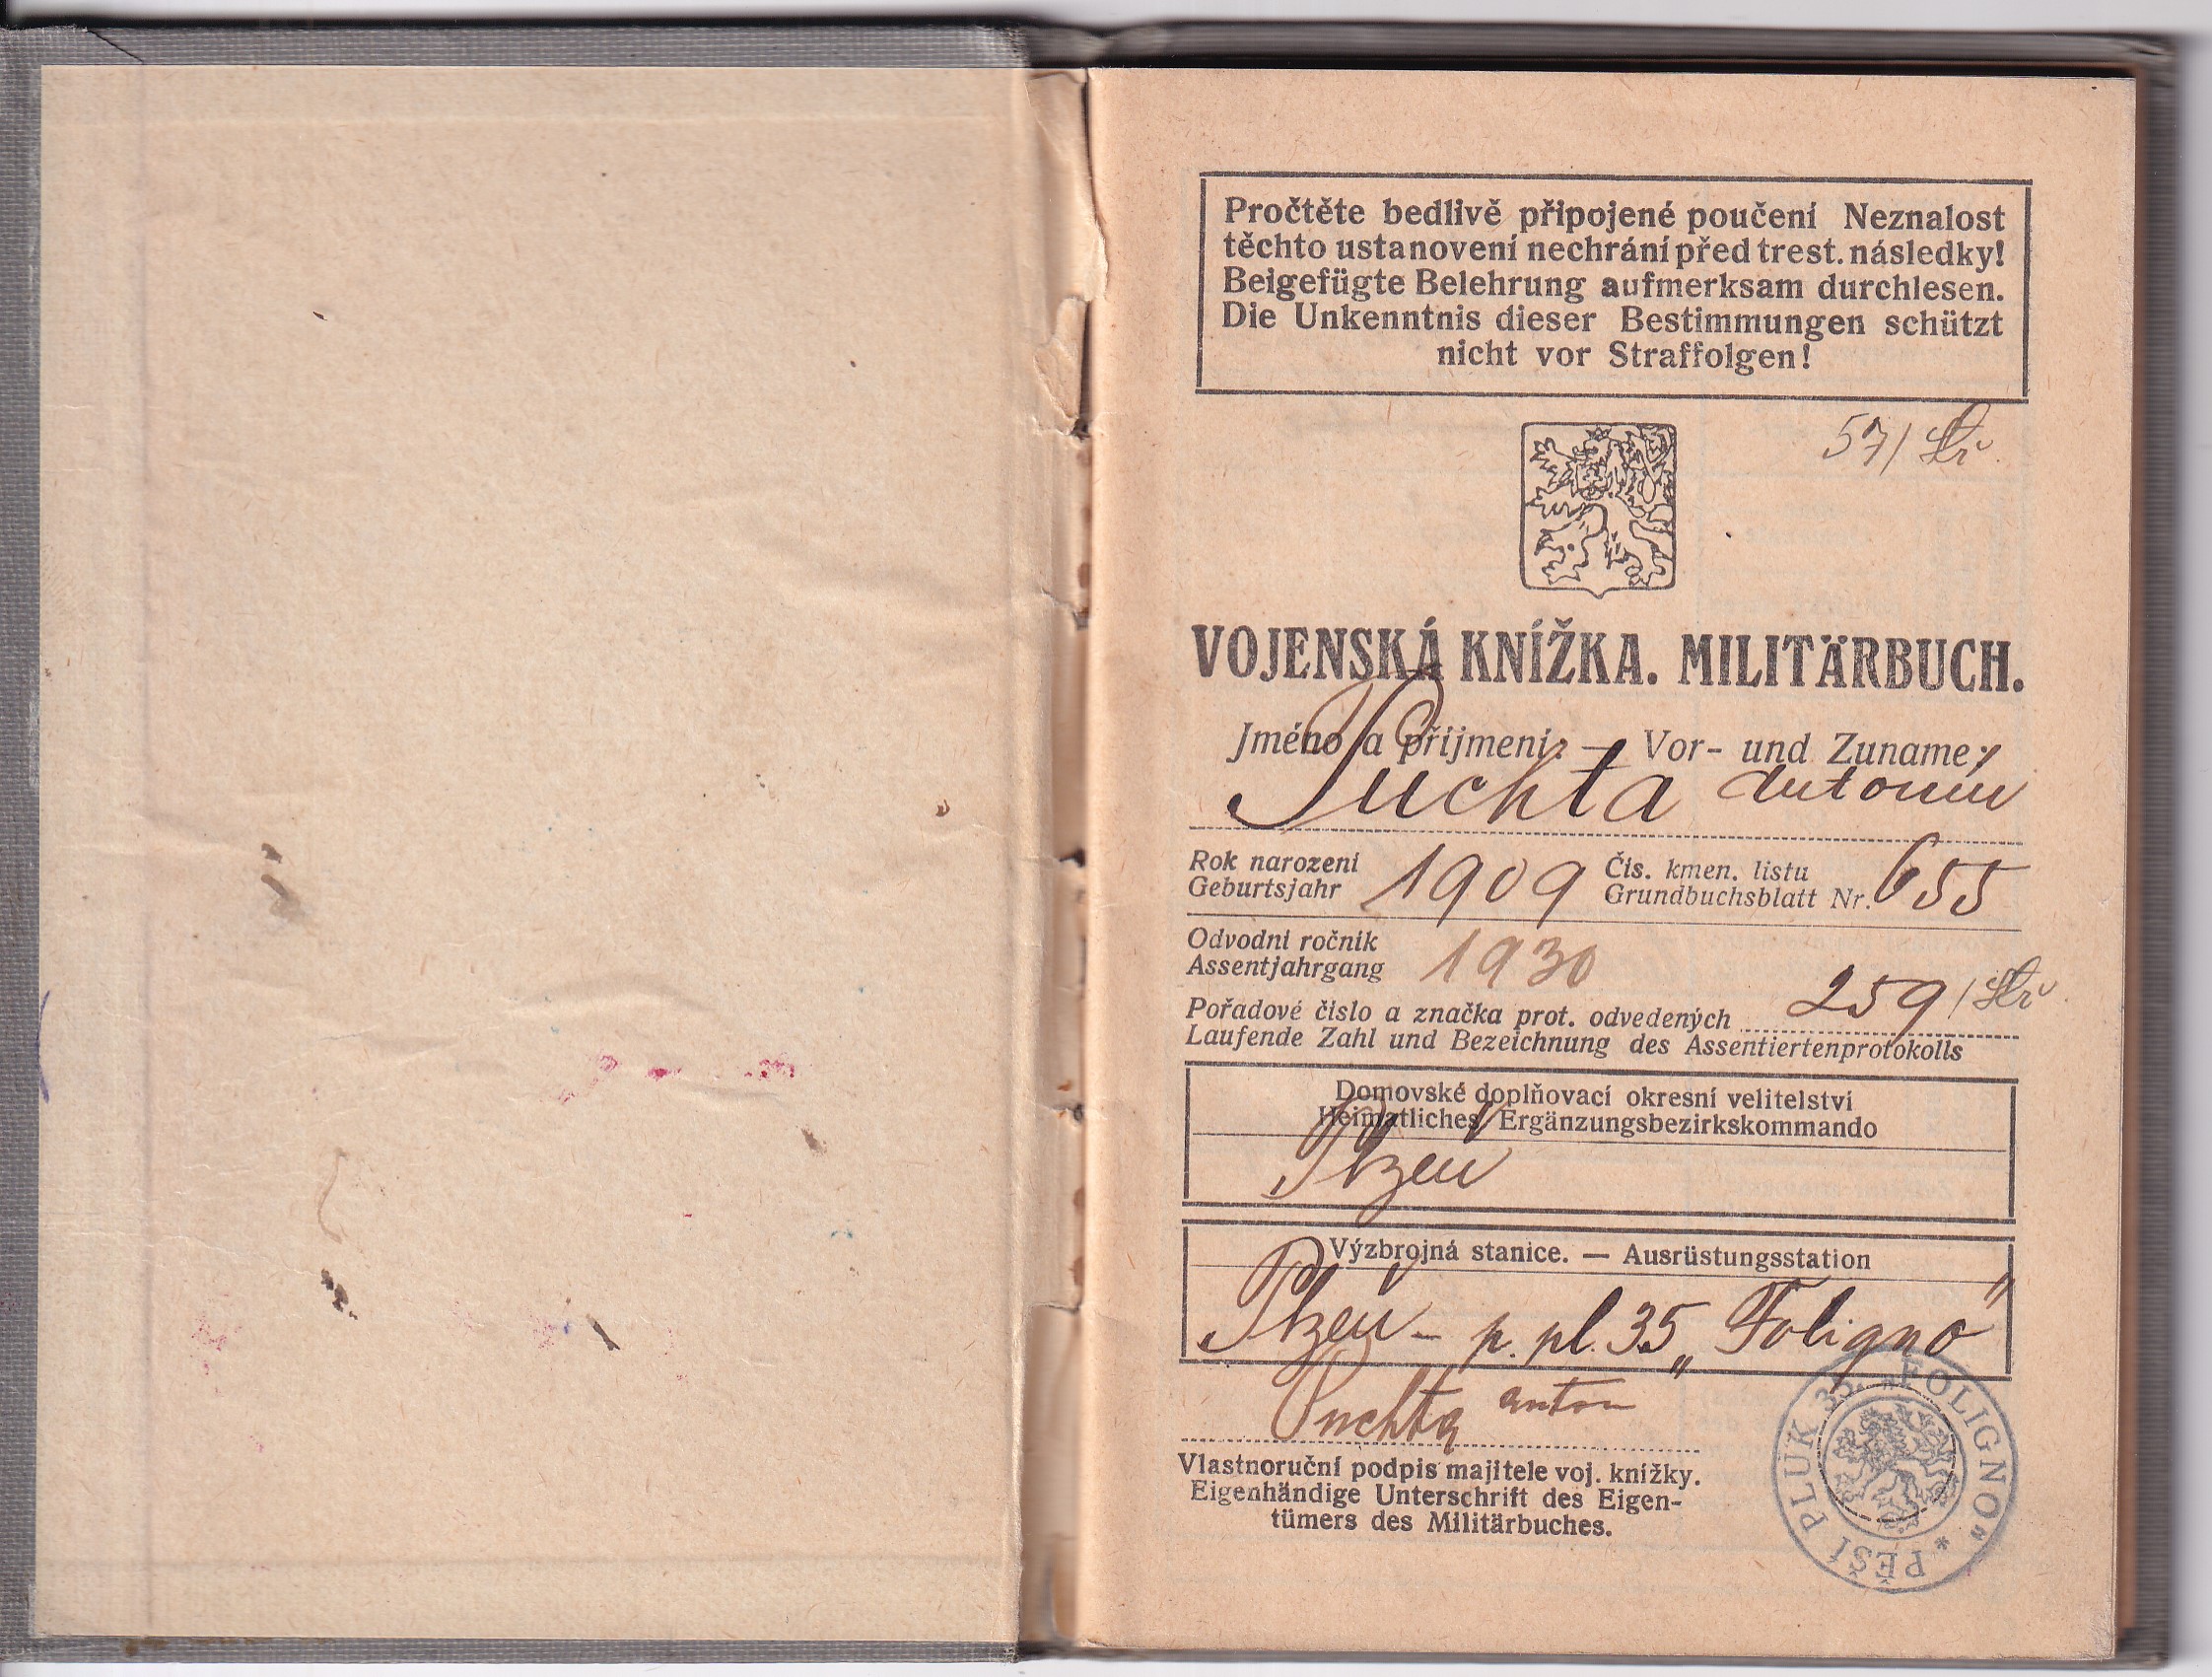 Pročtěte bedlivě připojené poučení Neznalost
těchto ustanovení nechrání před trest. následky!
Beigefügte Belehrung aufmerksam durchlesen.
Die Unkenntnis dieser Bestimmungen schützt
nicht vor Straffolgen!
57/
VOJENSKÁ KNÍŽKA. MILITÄRBUCH.
Jméno a přijmení: — Vor- und Zuname:
Puchta Antonín
Rok narození 1909 Čís. kmen. listu 655
Geburtsjahr Grundbuchsblatt Nr.
Odvodní ročník 1930
Assentjahrgang
Pořadové číslo a značka prot. odvedených 259/
Laufende Zahl und Bezeichnung des Assentiertenprotokolls
Domovské doplňovací okresní velitelství
Heimatliches Ergänzungsbezirkskommando
Plzeň
Výzbrojná stanice. — Ausrüstungsstation
Plzeň - p. pl. 35 „Foligno"
Puchta Anton
Vlastnoruční podpis majitele voj. knížky.
Eigenhändige Unterschrift des Eigen-
tümers des Militärbuches.
PĚŠÍ PLUK 35. „FOLIGNO" *